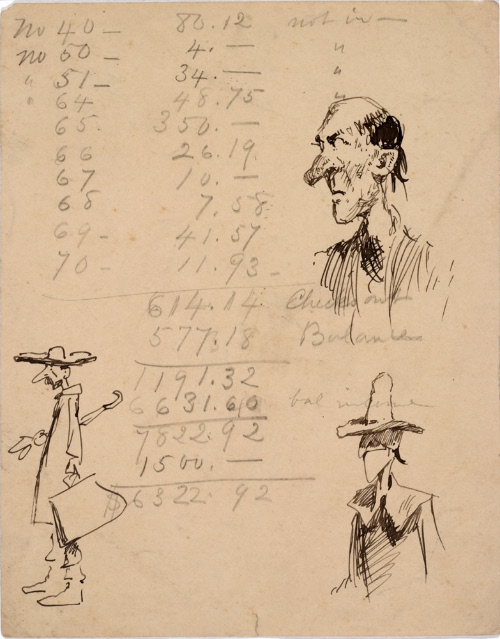 no 40 — 80.12 not in —
no 50 — 4. — "
" 51 — 34. — "
" 64 48.75 "
65. 350. —
66 26.19.
67 10. —
68 7.58
69 — 41.57
70 — 11.93 —
614.14 Checks out
577.18 Balance
1191.32
6631.60 bal
7822.92
1500. —
$6322.92